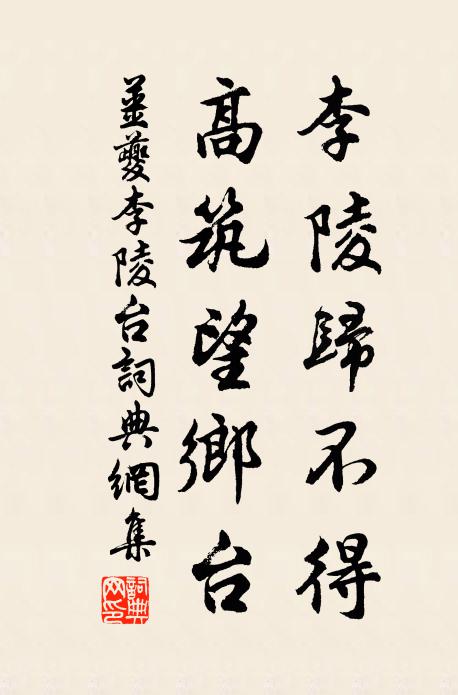 李陵歸不得
高筑望鄉台
薑夔李陵台詞典網集
詞典网印